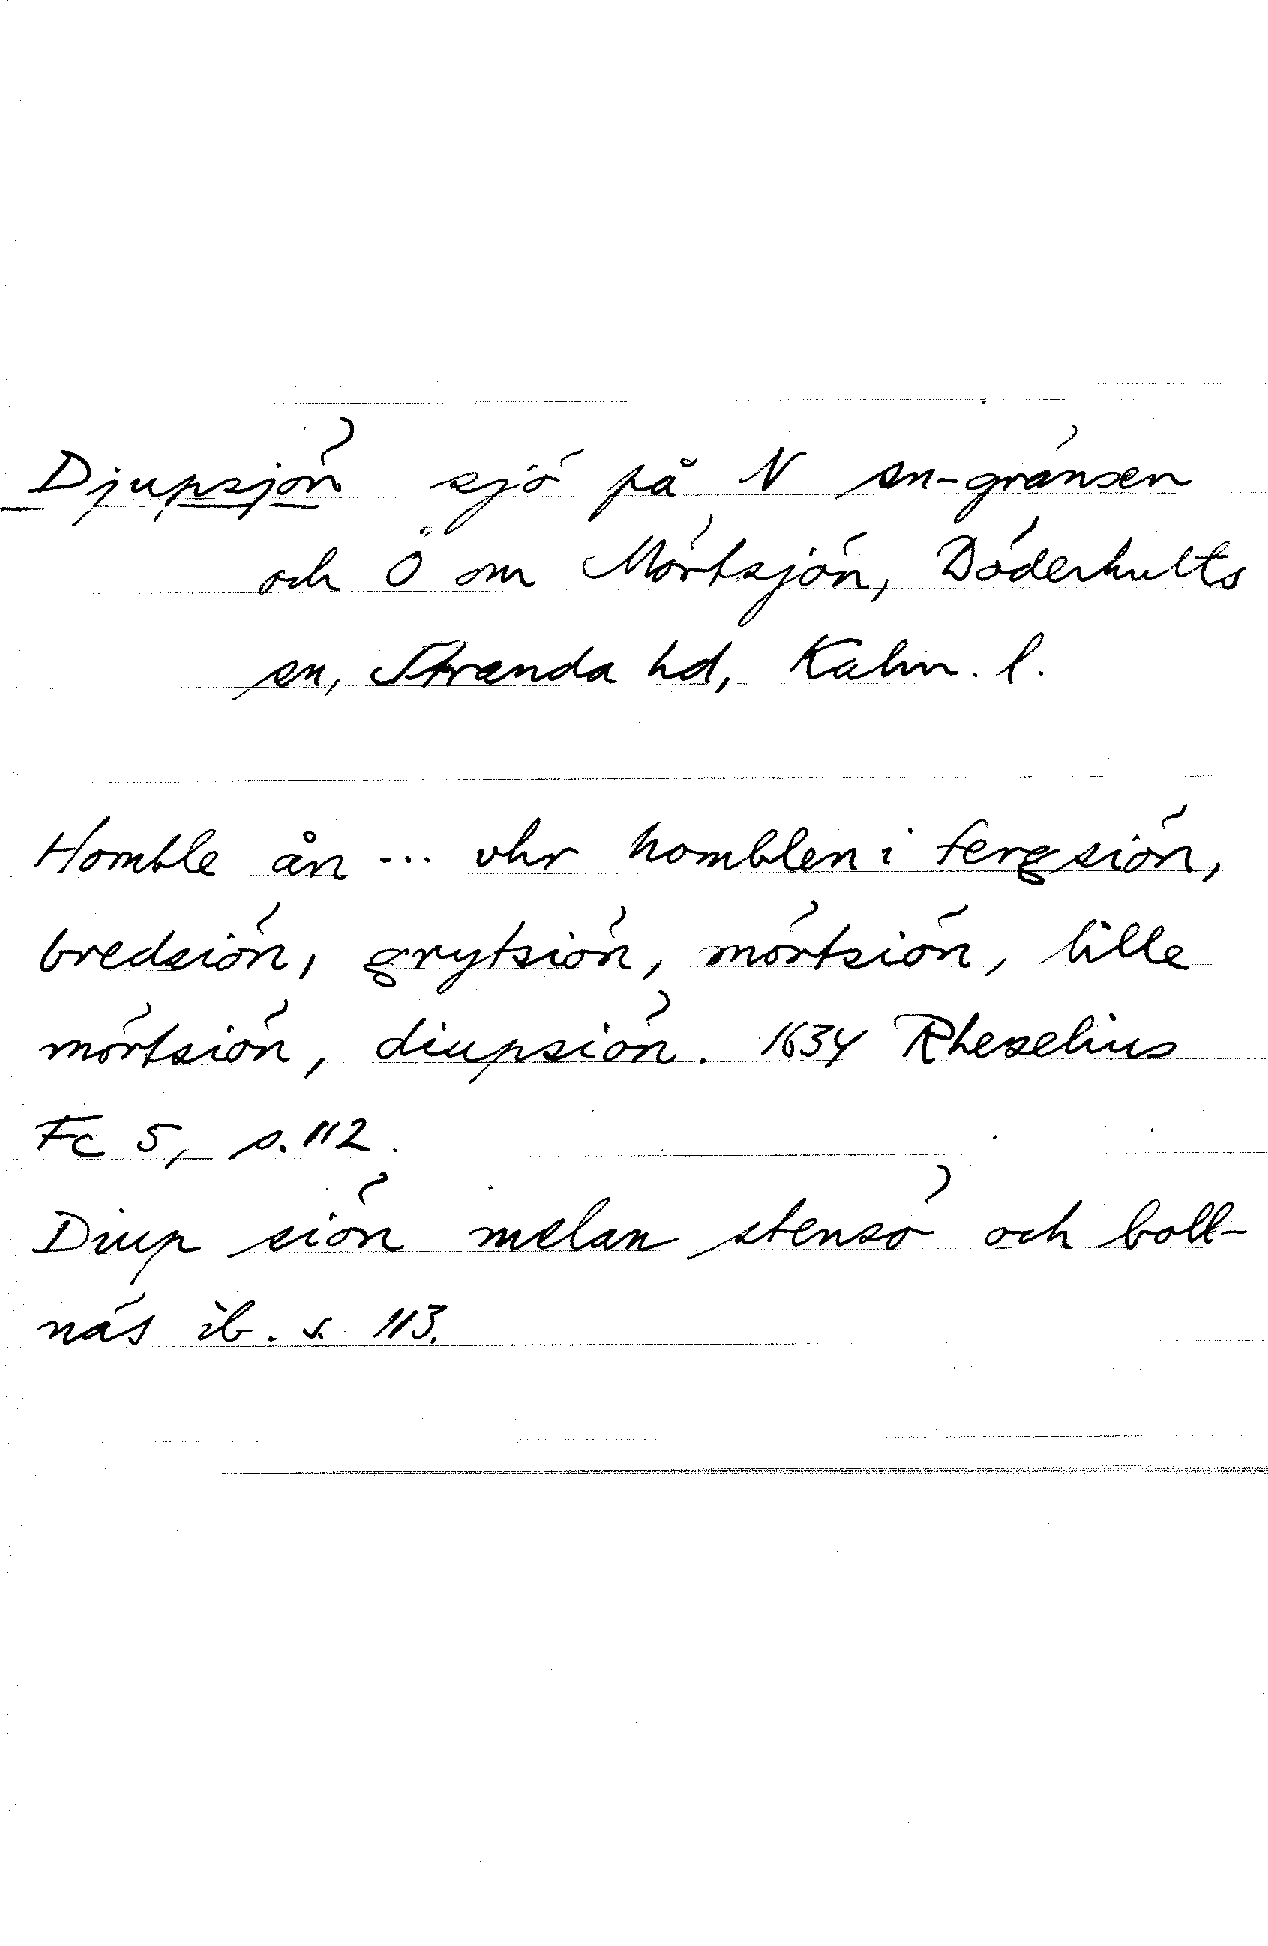 Djupsjön sjö på N sn-gränsen
och Ö om Mörtsjön, Döderhults
sn, Stranda hd, Kalm. l.
Homble ån ... vhr homblen i fergsiön,
bredsiön, grytsiön, mörtsiön, lille
mörtsiön, diupsiön. 1634 Rhezelius
Fc 5, s. 112.
Diup siön melan stensö och boll-
näs ib. s. 113.